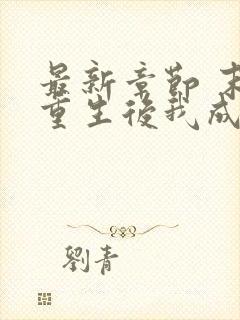 最新章節 末
重生後我成
劉青